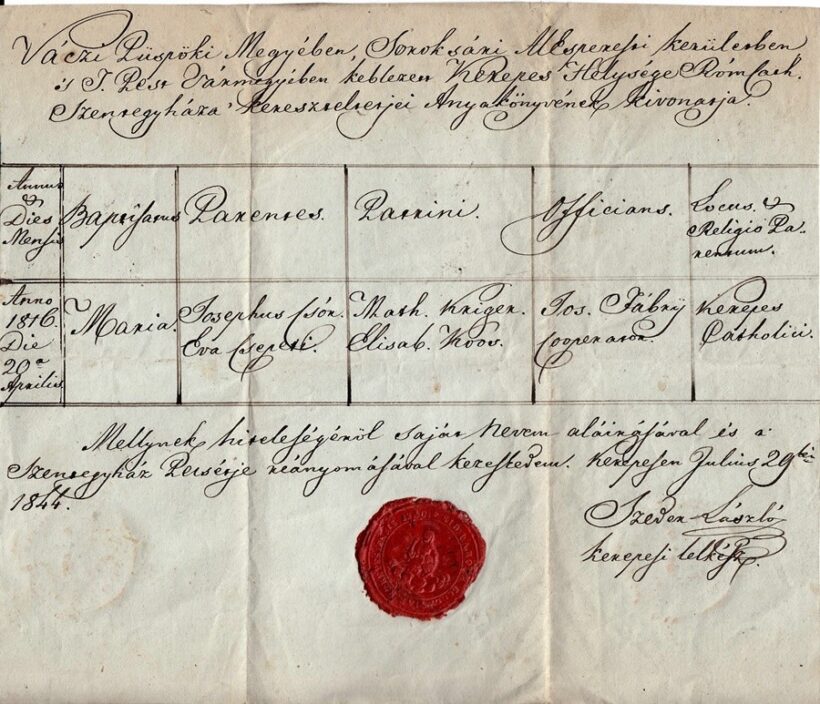 Váczi Püspöki Megyében, Soroksári Alesperesti kerületben
is T. Pest Vármegyében keblezett Kerepes Helysége Róm Cath.
Szentegyháza kereszteltetjei Anyakönyvének kivonatja.
Annus & Dies Mensis
Baptisatus
Parentes.
Patrini.
Officians.
Locus & Religio Parentum.
Anno 1816. Die 20a Aprilis.
Maria.
Josephus Csór. Eva Csepeti.
Math. Kriger. Elisab. Koos.
Jos. Fábry Cooperator.
Kerepes Catholici.
Mellynek hiteleségéről saját Nevem aláirásával és a
Szentegyház Petsétje reányomásával kezeskedem. Kerepesen Julius 29kén
1844.
Szeder László
kerepesi lelkész.